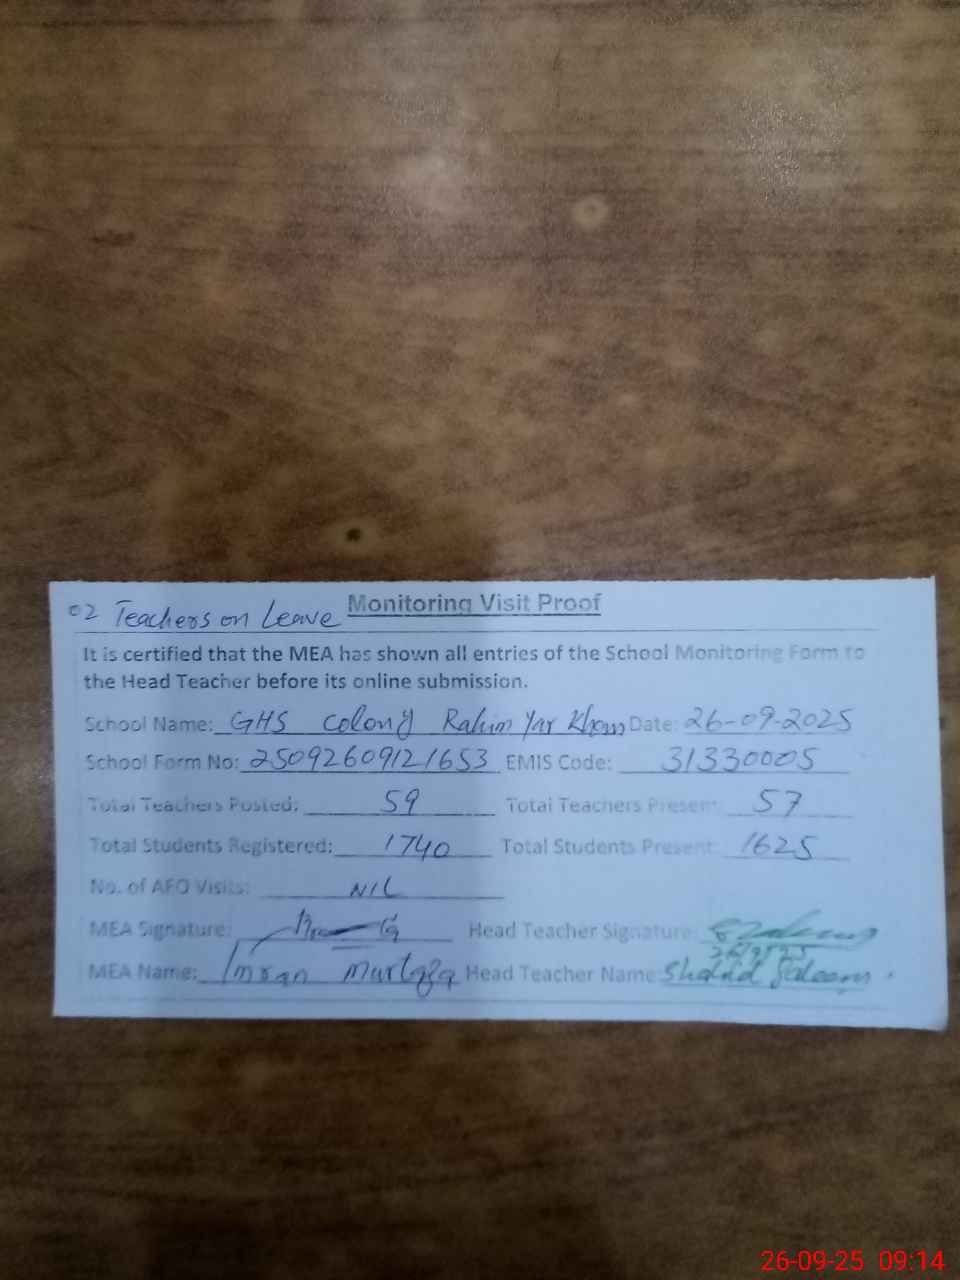 02 Teachers on Leave Monitoring Visit Proof
It is certified that the MEA has shown all entries of the School Monitoring Form to
the Head Teacher before its online submission.
School Name: GHS colony Rahim Yar Khan Date: 26-09-2025
School Form No: 25092609121653 EMIS Code: 31330005
Total Teachers Posted: 59 Total Teachers Present: 57
Total Students Registered: 1740 Total Students Present: 1625
No. of AFO Visits: NIL
MEA Signature: Head Teacher Signature:
MEA Name: Imran Murtaza Head Teacher Name: Shahid Saleem
26-09-25 09:14